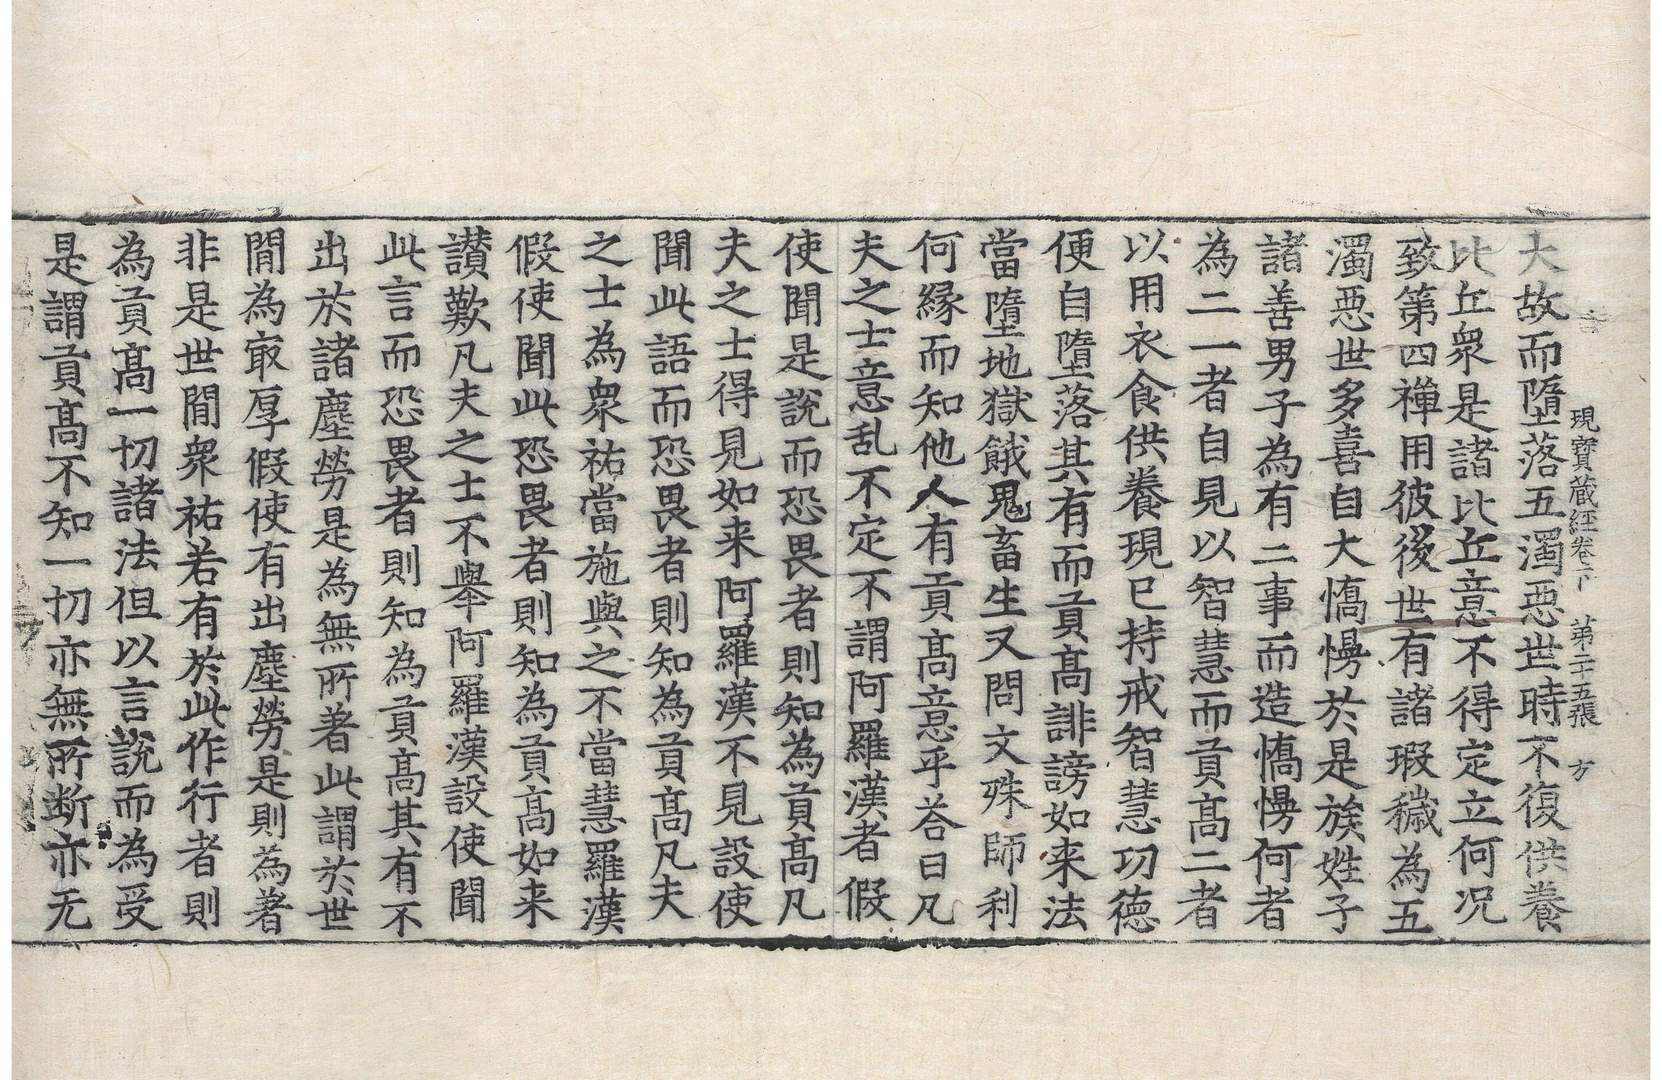 現寶蔵経卷下 第二十五張 方
大故而墮落五濁惡世時不復供養
比丘衆是諸比丘意不得定立何況
致第四禪用彼後世有諸瑕穢為五
濁惡世多喜自大憍慢於是族姓子
諸善男子為有二事而造憍慢何者
為二一者自見以智慧而貢高二者
以用衣食供養現已持戒智慧功德
便自墮落其有而貢高誹謗如来法
當墮地獄餓鬼畜生又問文殊師利
何緣而知他人有貢高意乎荅曰凡
夫之士意乱不定不謂阿羅漢者假
使聞是說而恐畏者則知為貢高凡
夫之士得見如来阿羅漢不見設使
聞此語而恐畏者則知為貢高凡夫
之士為衆祐當施與之不當慧羅漢
假使聞此恐畏者則知為貢高如来
讃歎凡夫之士不舉阿羅漢設使聞
此言而恐畏者則知為貢高其有不
出於諸塵勞是為無所著此謂於世
閒為㝡厚假使有出塵勞是則為著
非是世閒衆祐若有於此作行者則
為貢高一切諸法但以言說而為受
是謂貢高不知一切亦無所断亦无